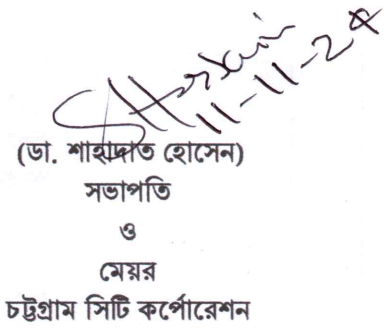 SHossain
11-11-24
(ডা. শাহাদাত হোসেন)
সভাপতি
ও
মেয়র
চট্টগ্রাম সিটি কর্পোরেশন